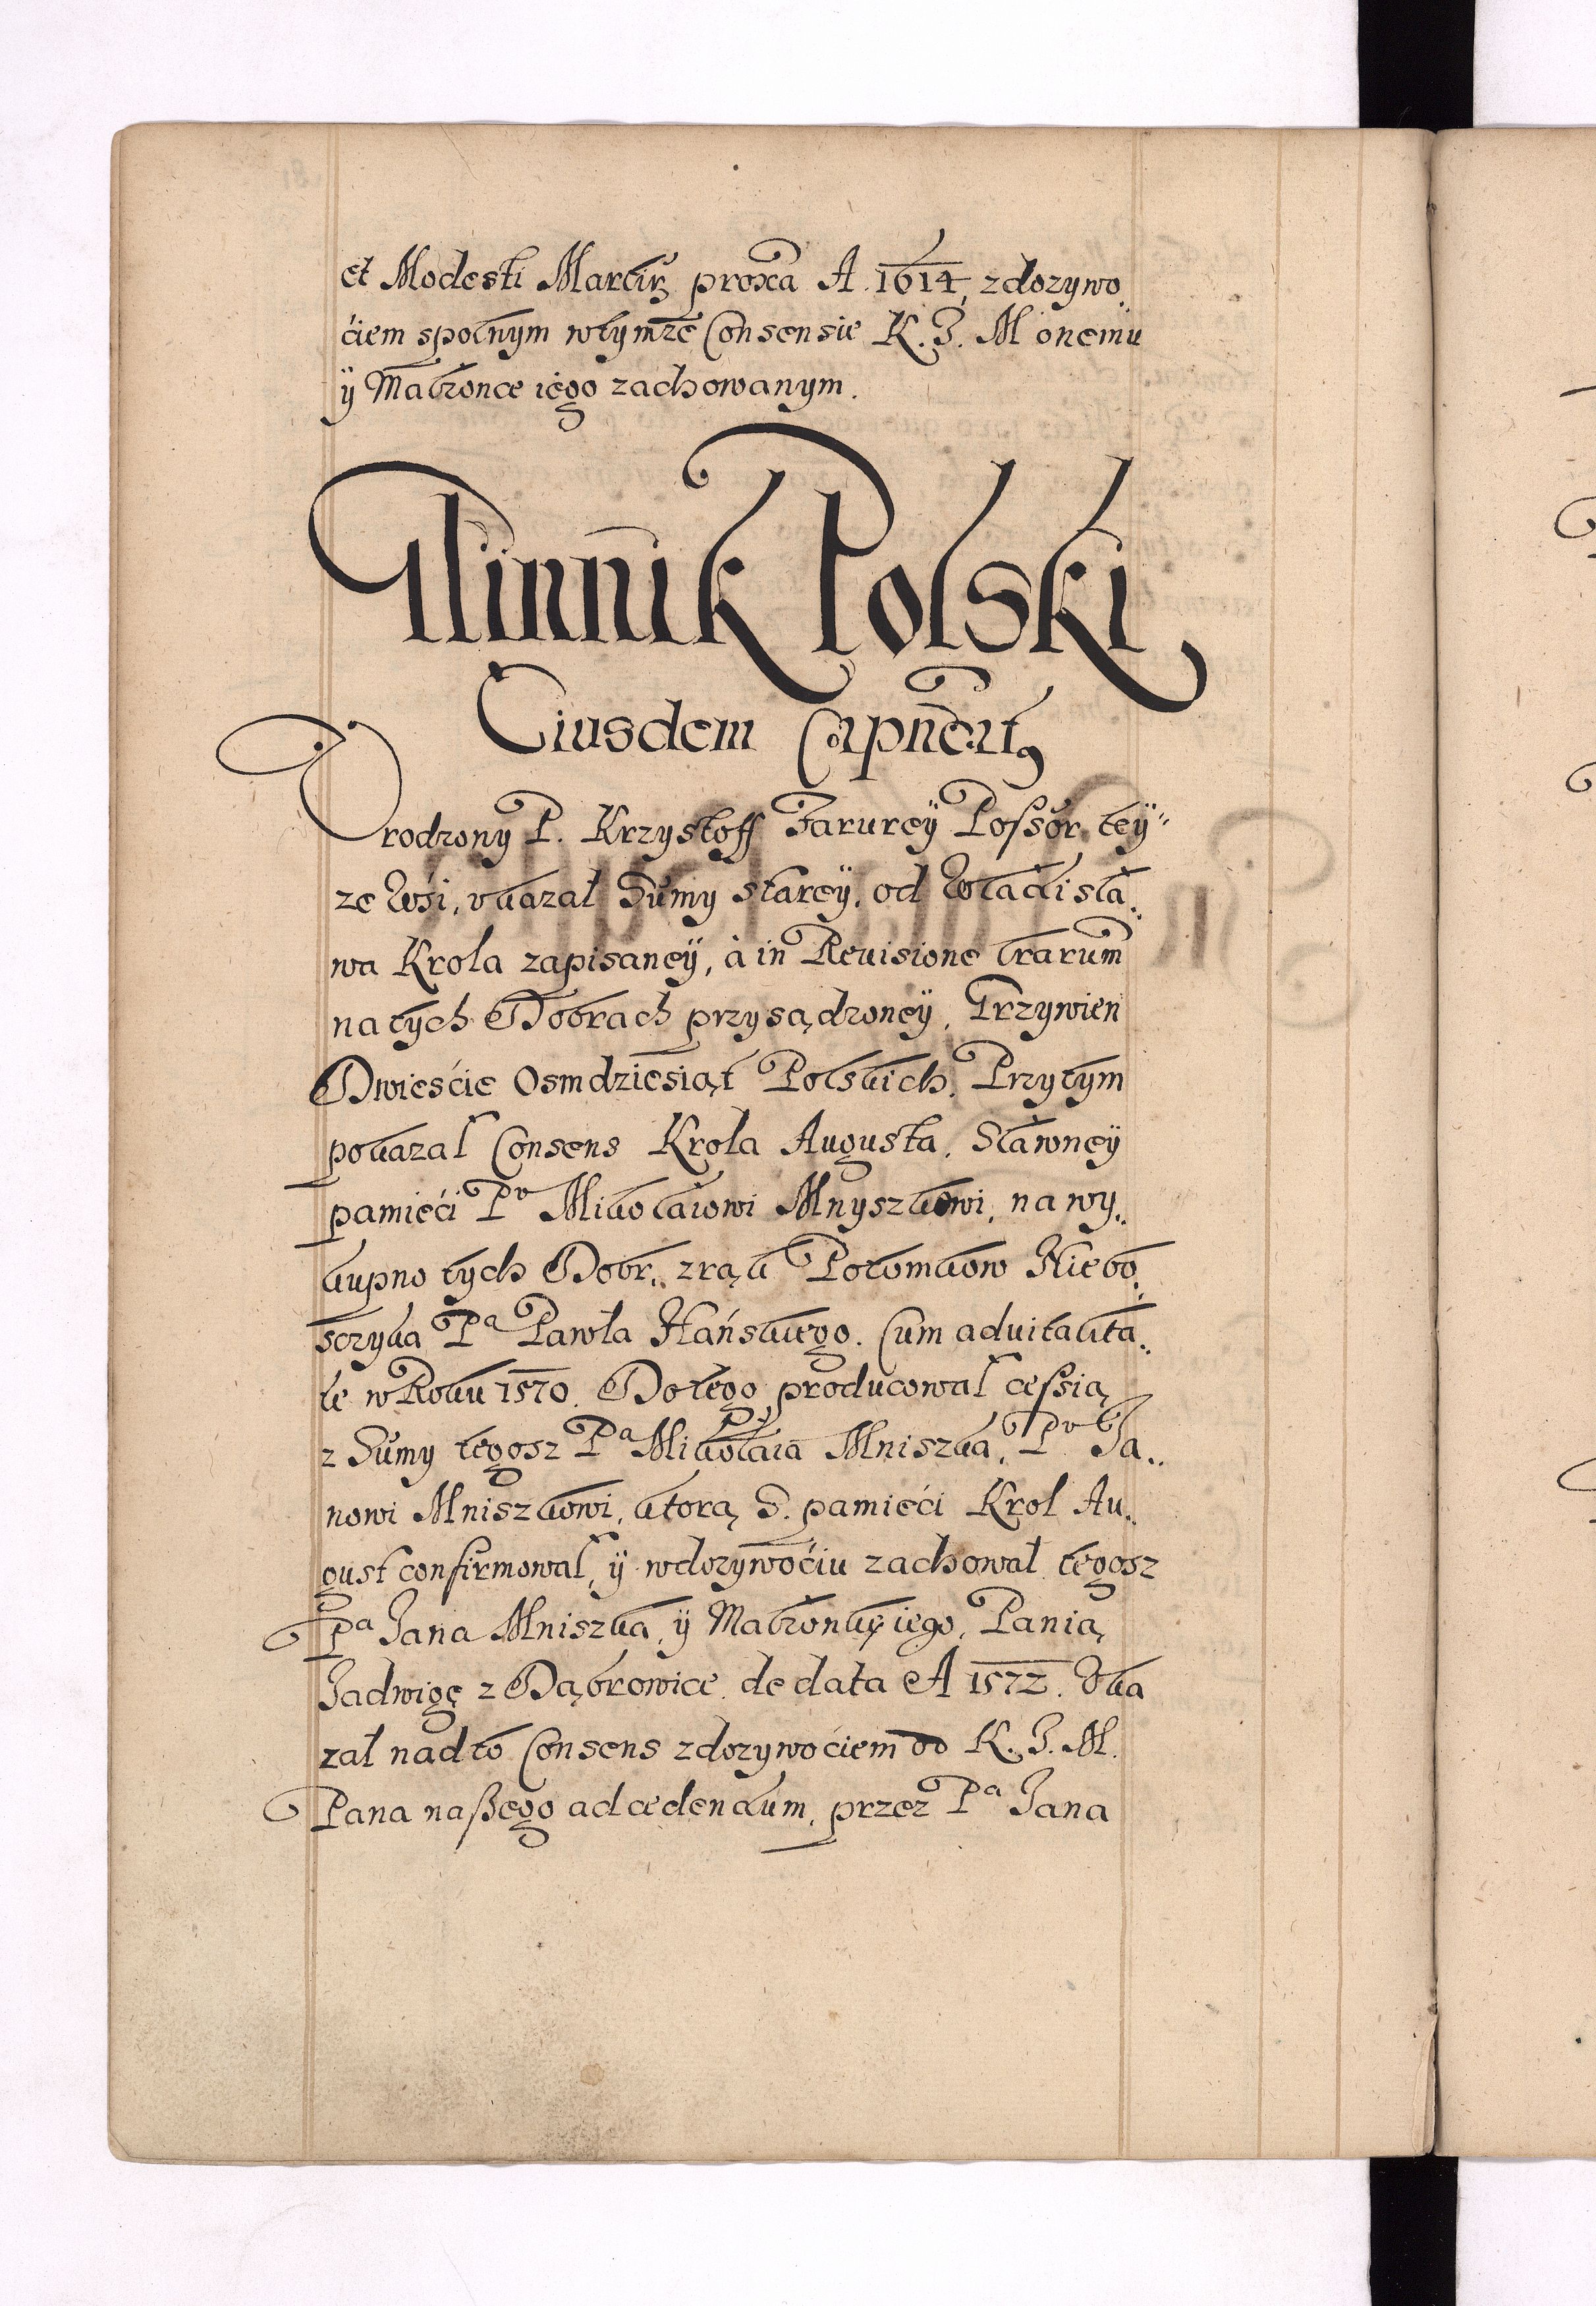 et Modesti Martir, proxa A. 1614, z dozywo,
ćiem społnym w tymże Consensie K. J. M onemu
ÿ Małzonce iego zachowanym.
Glinnik Polski
Eiusdem Capneats
Vrodzony P. Krzysztoff Jarurey Possor, teÿ"
ze Wśi, vkazał Sumy stareÿ, od Władisła,,
wa Krola zapisaneÿ, à in Reuisione lrarum
na tych Dobrach przysądzoneÿ, Grzywien
Dwieście Osmdziesiąt Polskich. Przytym
pokazał Consens Krola Augusta, Sławneÿ
pamięći Pu Mikołaiowi Mnyszkowi, na wy,,
kupno tych Dobr,, z rąk Potomkow Niebo,,
sczyka Pa Pawła Hańskiego. Cum aduitalita,,
te w Roku 1570. Do tego producował cessią
z Sumy tegosz Pa Mikołaia Mniszka, Pu Ja,,
nowi Mniszkowi, ktorą S. pamięći Krol Au,,
gust confirmował, ÿ w dozywoćiu zachował tegosz
Pa Jana Mniszka, ÿ Małzonkę iego, Panią
Jadwigę z Dąbrowice. de data A 1572. Vka
zał nad to Consens z dozywoćiem od K. J. M.
Pana naßego ad cedendum, przez Pa Jana